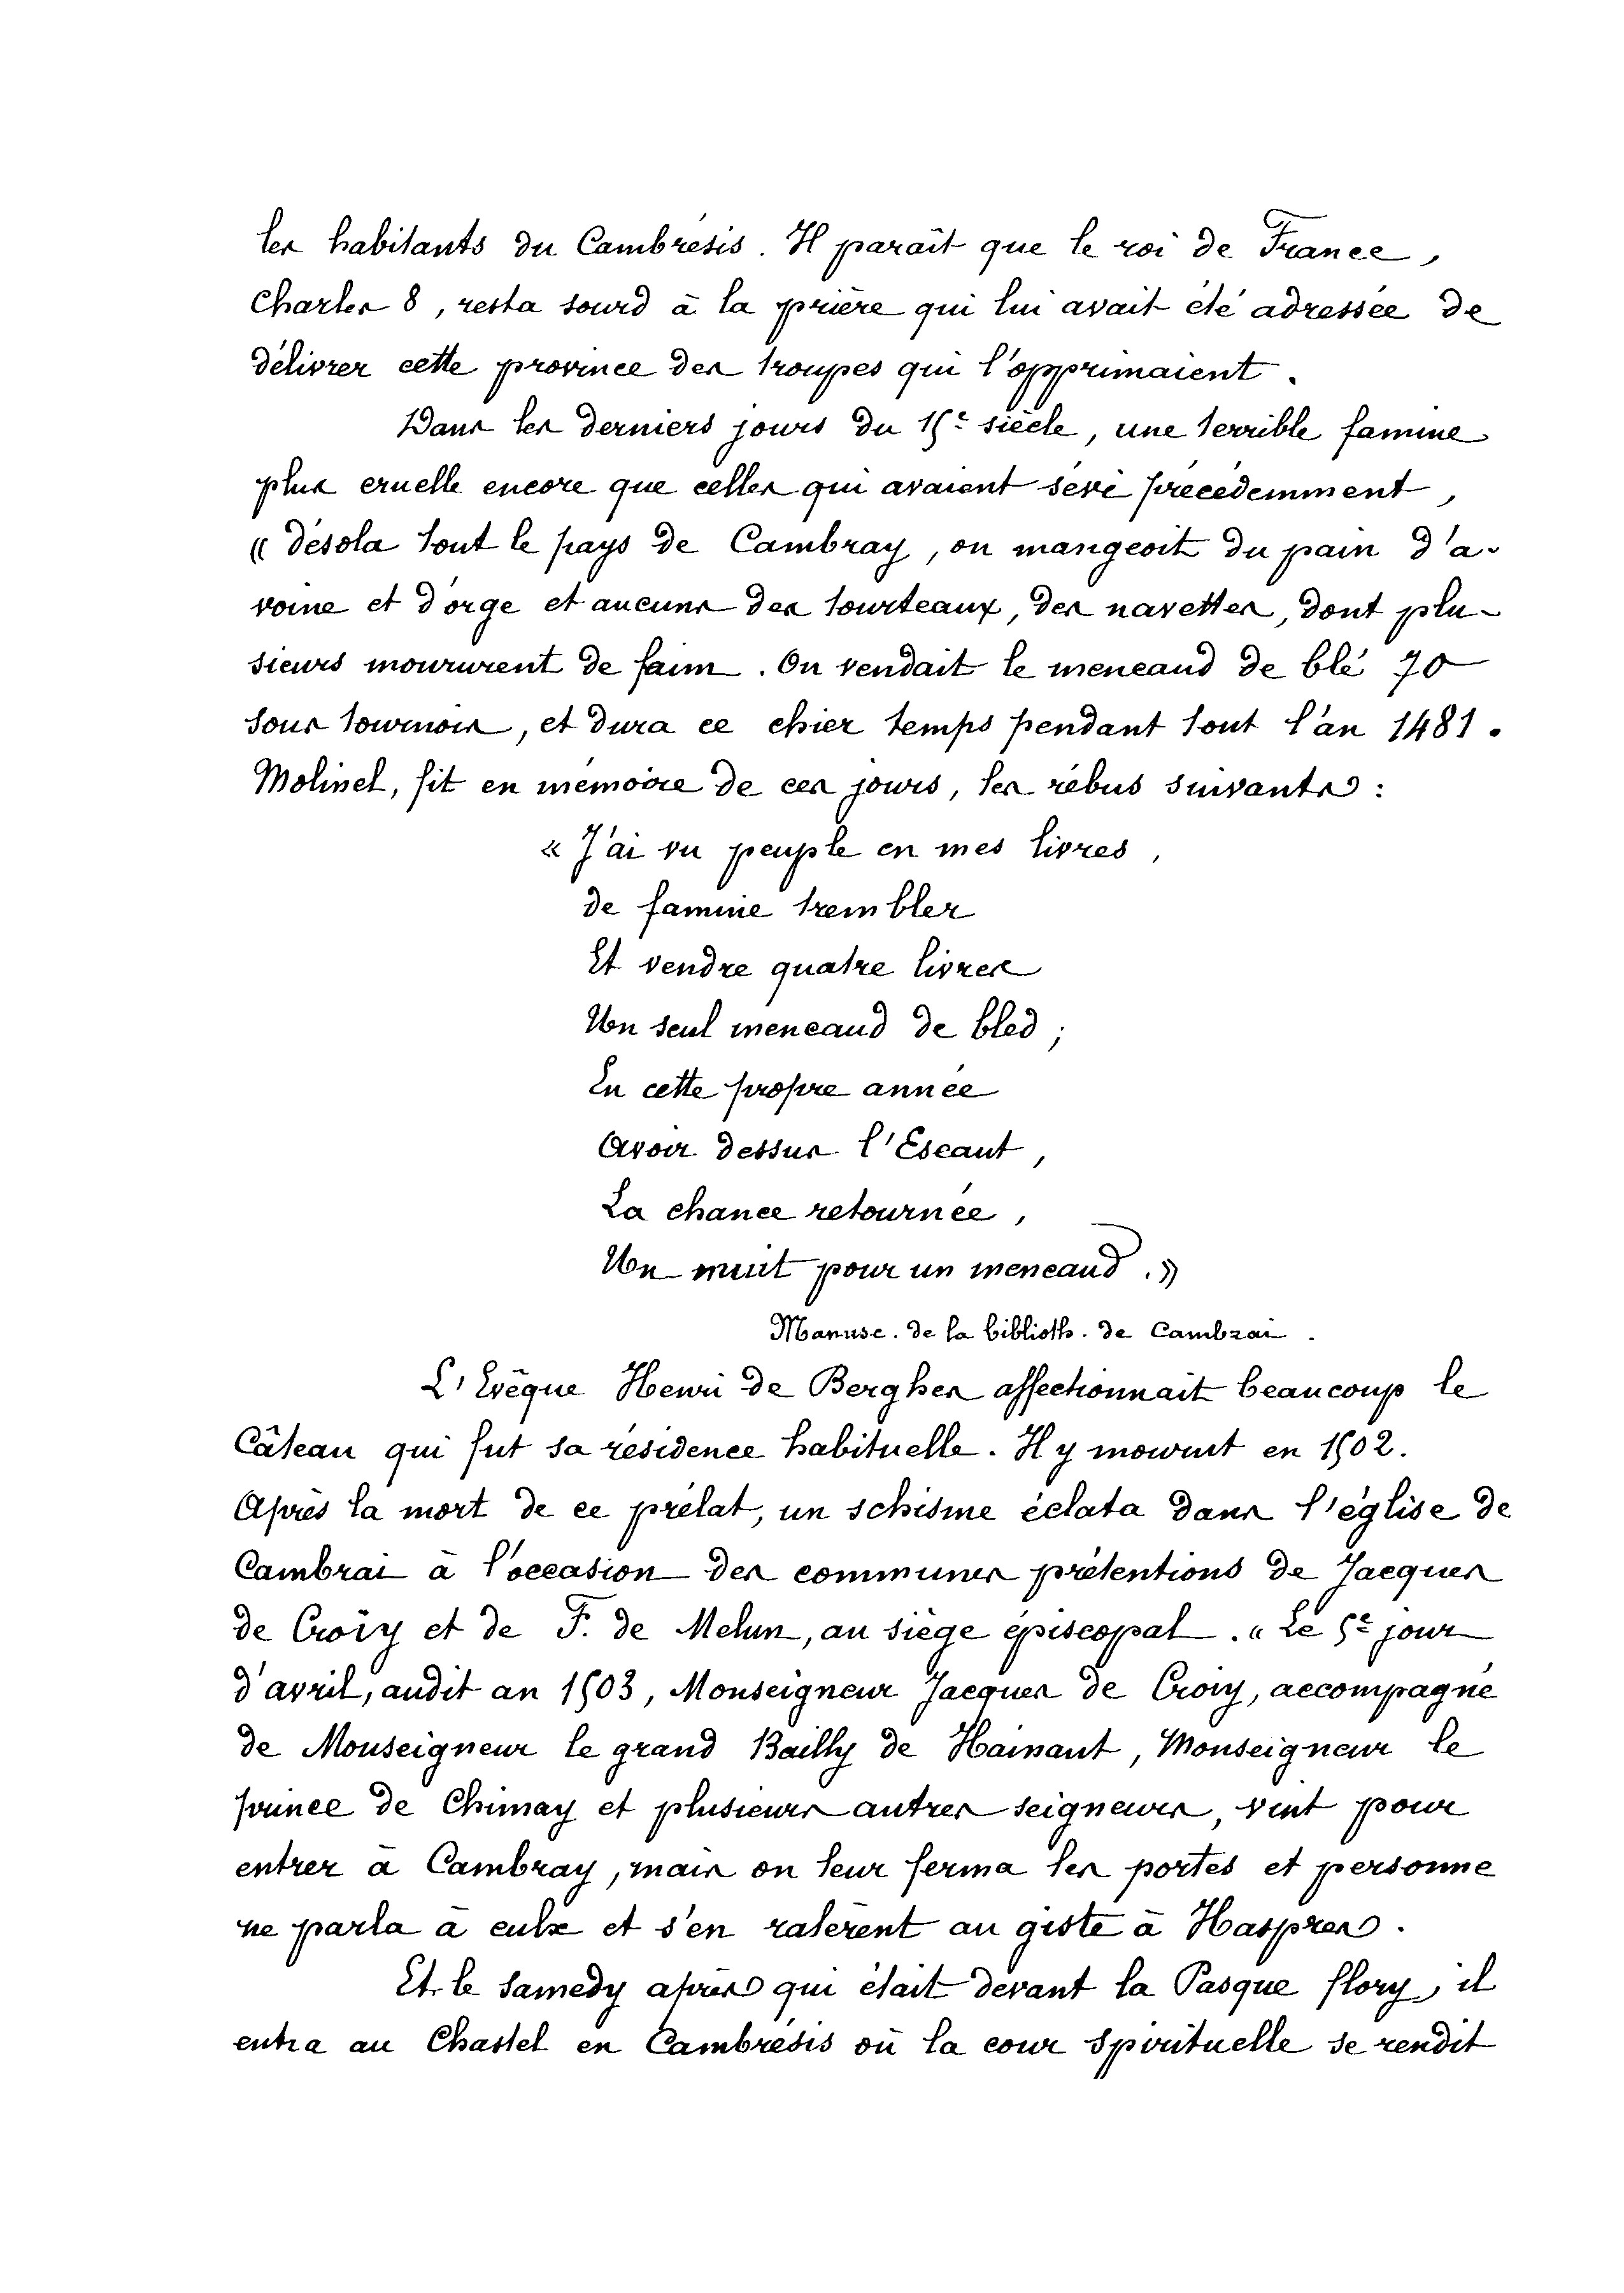 les habitants du Cambrésis. Il paraît que le roi de France,
Charles 8, resta sourd à la prière qui lui avait été adressée de
délivrer cette province des troupes qui l'opprimaient.
Dans les derniers jours du 15e siècle, une terrible famine
plus cruelle encore que celles qui avaient sévi précédemment,
« désola tout le pays de Cambray, on mangeoit du pain d'a-
voine et d'orge et aucuns des tourteaux, des navettes, dont plu-
sieurs moururent de faim. On vendait le meneaud de blé 70
sous tournois, et dura ce chier temps pendant tout l'an 1481.
Molinet, fit en mémoire de ces jours, les rébus suivants :
« J'ai vu peuple en mes livres,
de famine trembler
Et vendre quatre livres
Un seul meneaud de bled ;
En cette propre année
Avoir dessus l'Escaut,
La chance retournée,
Un muit pour un meneaud. »
Manusc. de la biblioth. de Cambrai.
L'Evêque Henri de Berghes affectionnait beaucoup le
Câteau qui fut sa résidence habituelle. Il y mourut en 1502.
Après la mort de ce prélat, un schisme éclata dans l'église de
Cambrai à l'occasion des communes prétentions de Jacques
de Croïy et de F. de Melun, au siège épiscopal. « Le 5e jour
d'avril, audit an 1503, Monseigneur Jacques de Croiy, accompagné
de Monseigneur le grand Bailly de Hainaut, Monseigneur le
prince de Chimay et plusieurs autres seigneurs, vint pour
entrer à Cambray, mais on leur ferma les portes et personne
ne parla à eulx et s'en ralèrent au giste à Haspres.
Et le samedy après qui était devant la Pasque flory, il
entra au Chastel en Cambrésis où la cour spirituelle se rendit